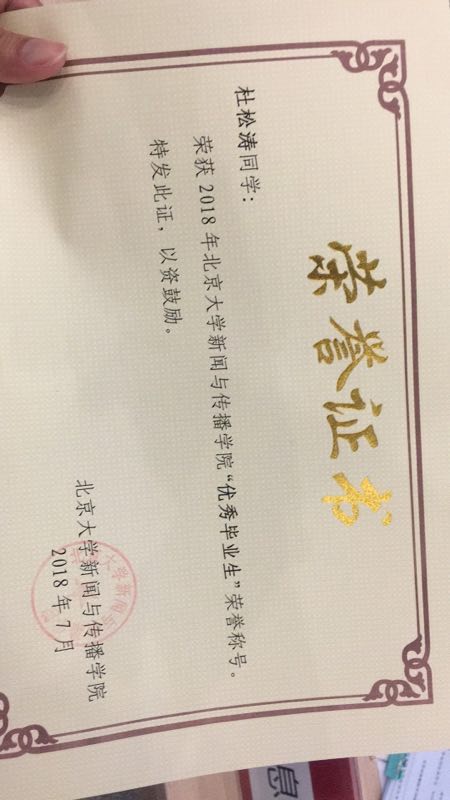 荣誉证书
杜松涛同学：
荣获 2018 年北京大学新闻与传播学院“优秀毕业生”荣誉称号。
特发此证，以资鼓励。
北京大学新闻与传播学院
2018 年 7 月
息